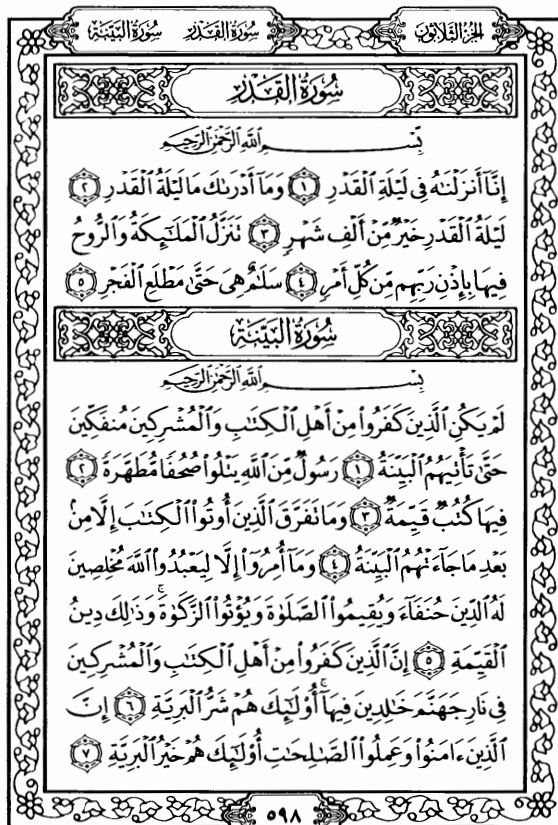 الجزء الثلاثون
سورة القدر سورة البينة
سُورَةُ القَدْرِ
بِسْمِ اللَّهِ الرَّحْمَٰنِ الرَّحِيمِ
إِنَّآ أَنزَلْنَٰهُ فِى لَيْلَةِ ٱلْقَدْرِ ١ وَمَآ أَدْرَىٰكَ مَا لَيْلَةُ ٱلْقَدْرِ ٢
لَيْلَةُ ٱلْقَدْرِ خَيْرٌ مِّنْ أَلْفِ شَهْرٍ ٣ تَنَزَّلُ ٱلْمَلَٰٓئِكَةُ وَٱلرُّوحُ
فِيهَا بِإِذْنِ رَبِّهِم مِّن كُلِّ أَمْرٍ ٤ سَلَٰمٌ هِىَ حَتَّىٰ مَطْلَعِ ٱلْفَجْرِ ٥
سُورَةُ البَيِّنَةِ
بِسْمِ اللَّهِ الرَّحْمَٰنِ الرَّحِيمِ
لَمْ يَكُنِ ٱلَّذِينَ كَفَرُوا۟ مِنْ أَهْلِ ٱلْكِتَٰبِ وَٱلْمُشْرِكِينَ مُنفَكِّينَ
حَتَّىٰ تَأْتِيَهُمُ ٱلْبَيِّنَةُ ١ رَسُولٌ مِّنَ ٱللَّهِ يَتْلُوا۟ صُحُفًا مُّطَهَّرَةً ٢
فِيهَا كُتُبٌ قَيِّمَةٌ ٣ وَمَا تَفَرَّقَ ٱلَّذِينَ أُوتُوا۟ ٱلْكِتَٰبَ إِلَّا مِنۢ
بَعْدِ مَا جَآءَتْهُمُ ٱلْبَيِّنَةُ ٤ وَمَآ أُمِرُوٓا۟ إِلَّا لِيَعْبُدُوا۟ ٱللَّهَ مُخْلِصِينَ
لَهُ ٱلدِّينَ حُنَفَآءَ وَيُقِيمُوا۟ ٱلصَّلَوٰةَ وَيُؤْتُوا۟ ٱلزَّكَوٰةَ ۚ وَذَٰلِكَ دِينُ
ٱلْقَيِّمَةِ ٥ إِنَّ ٱلَّذِينَ كَفَرُوا۟ مِنْ أَهْلِ ٱلْكِتَٰبِ وَٱلْمُشْرِكِينَ
فِى نَارِ جَهَنَّمَ خَٰلِدِينَ فِيهَآ ۚ أُو۟لَٰٓئِكَ هُمْ شَرُّ ٱلْبَرِيَّةِ ٦ إِنَّ
ٱلَّذِينَ ءَامَنُوا۟ وَعَمِلُوا۟ ٱلصَّٰلِحَٰتِ أُو۟لَٰٓئِكَ هُمْ خَيْرُ ٱلْبَرِيَّةِ ٧
٥٩٨